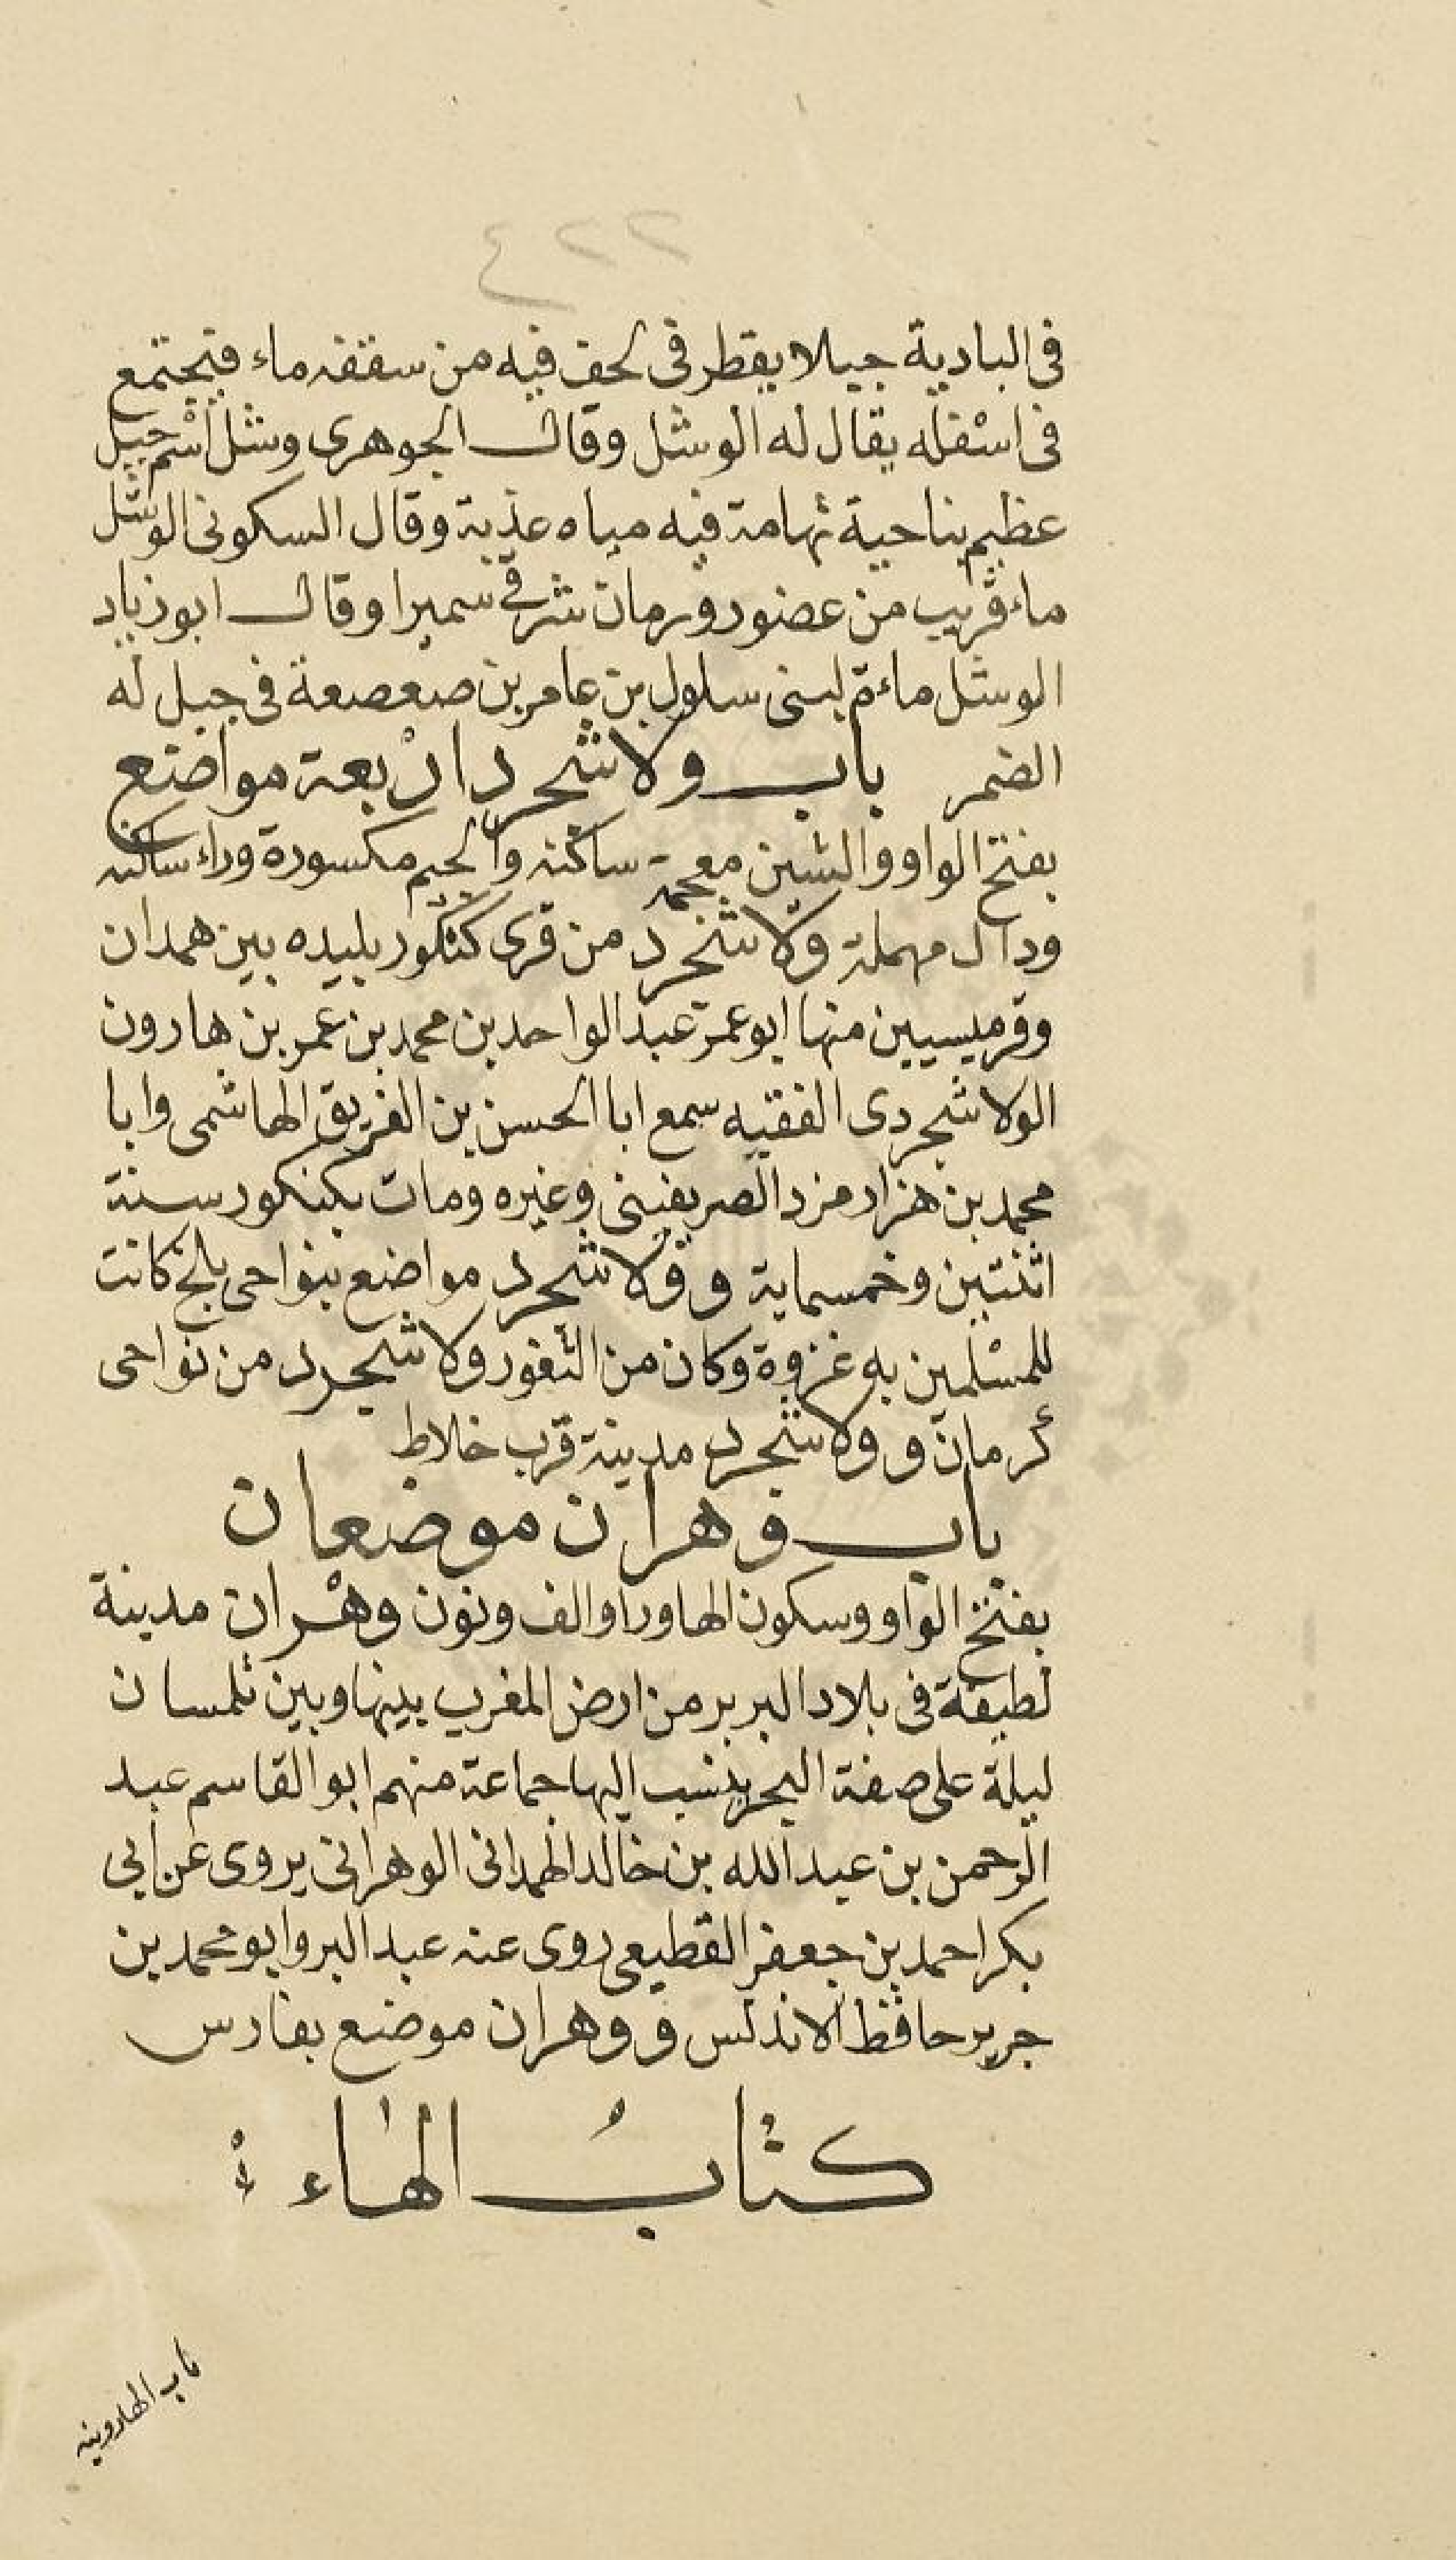 ٤٢٢
فى البادية جبيلا يقطر فى لحف فيه من سقفه ماء فيجتمع
فى اسفله يقال له الوشل وقال الجوهرى وشل اسم جبل
عظيم بناحية تهامة فيه مياه عذبة وقال السكونى الوشل
ماء قريب من عضور ورمان شرقى سميرا وقال ابو زياد
الوشل ماءة لبنى سلول بن عامر بن صعصعة فى جبل له
الضمر باب ولاشجرد اربعة مواضع
بفتح الواو والشين معجمة ساكنة والجيم مكسورة وراء ساكنة
ودال مهملة ولاشجرد من قرى كنكور بليده بين همدان
وقرميسيين منها ابو عمرة عبد الواحد بن محمد بن عمر بن هارون
الولاشجردى الفقيه سمع ابا الحسن بن الغريق الهاشمى وابا
محمد بن هزارمزد الصريفينى وغيره ومات بكنكور سنة
اثنتين وخمسماية و ولاشجرد مواضع بنواحى بلخ كانت
للمسلمين به غزوة وكان من الثغور ولاشجرد من نواحى
كرمان و ولاشجرد مدينة قرب خلاط
باب وهران موضعان
بفتح الواو وسكون الها وراوالف ونون وهران مدينة
لطيفة فى بلاد البربر من ارض المغرب بينها وبين تلمسان
ليلة على صفة البحر ينسب اليها جماعة منهم ابو القاسم عبد
الرحمن بن عبد الله بن خالد الهمدانى الوهرانى يروى عن ابى
بكر احمد بن جعفر القطيعى روى عنه عبد البر وابو محمد بن
جرير حافظ الاندلس و وهران موضع بفارس
كتاب الهاء
باب الهارونيه